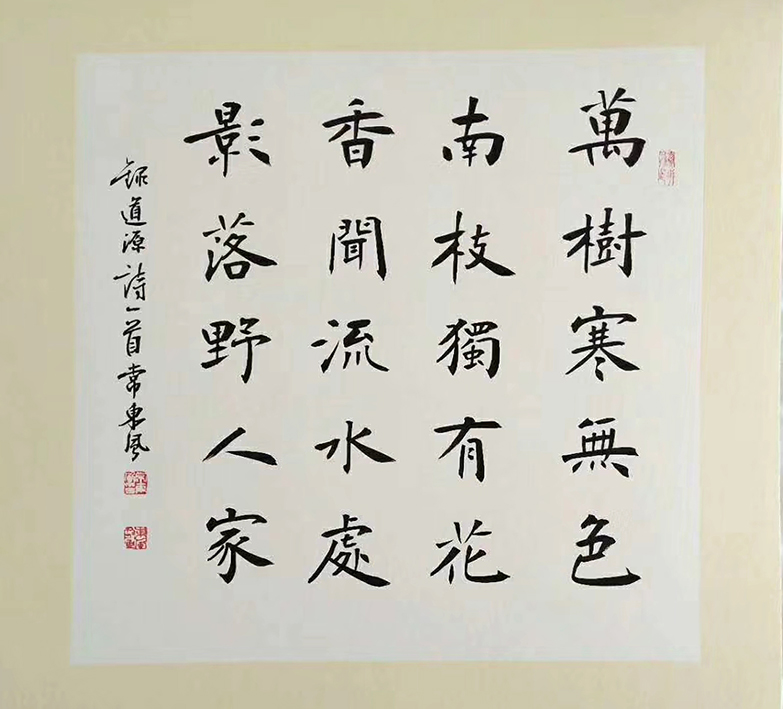 萬樹寒無色
南枝獨有花
香聞流水處
影落野人家
錄道源詩一首常東風